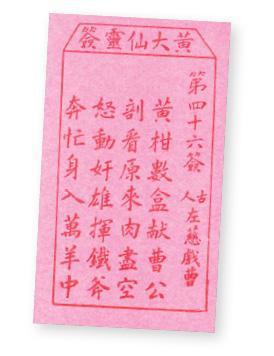 黃大仙靈簽
第四十六簽
古人左慈戲曹
黃柑數盒献曹公
剖看原來肉盡空
怒動奸雄揮鐵斧
奔忙身入萬羊中